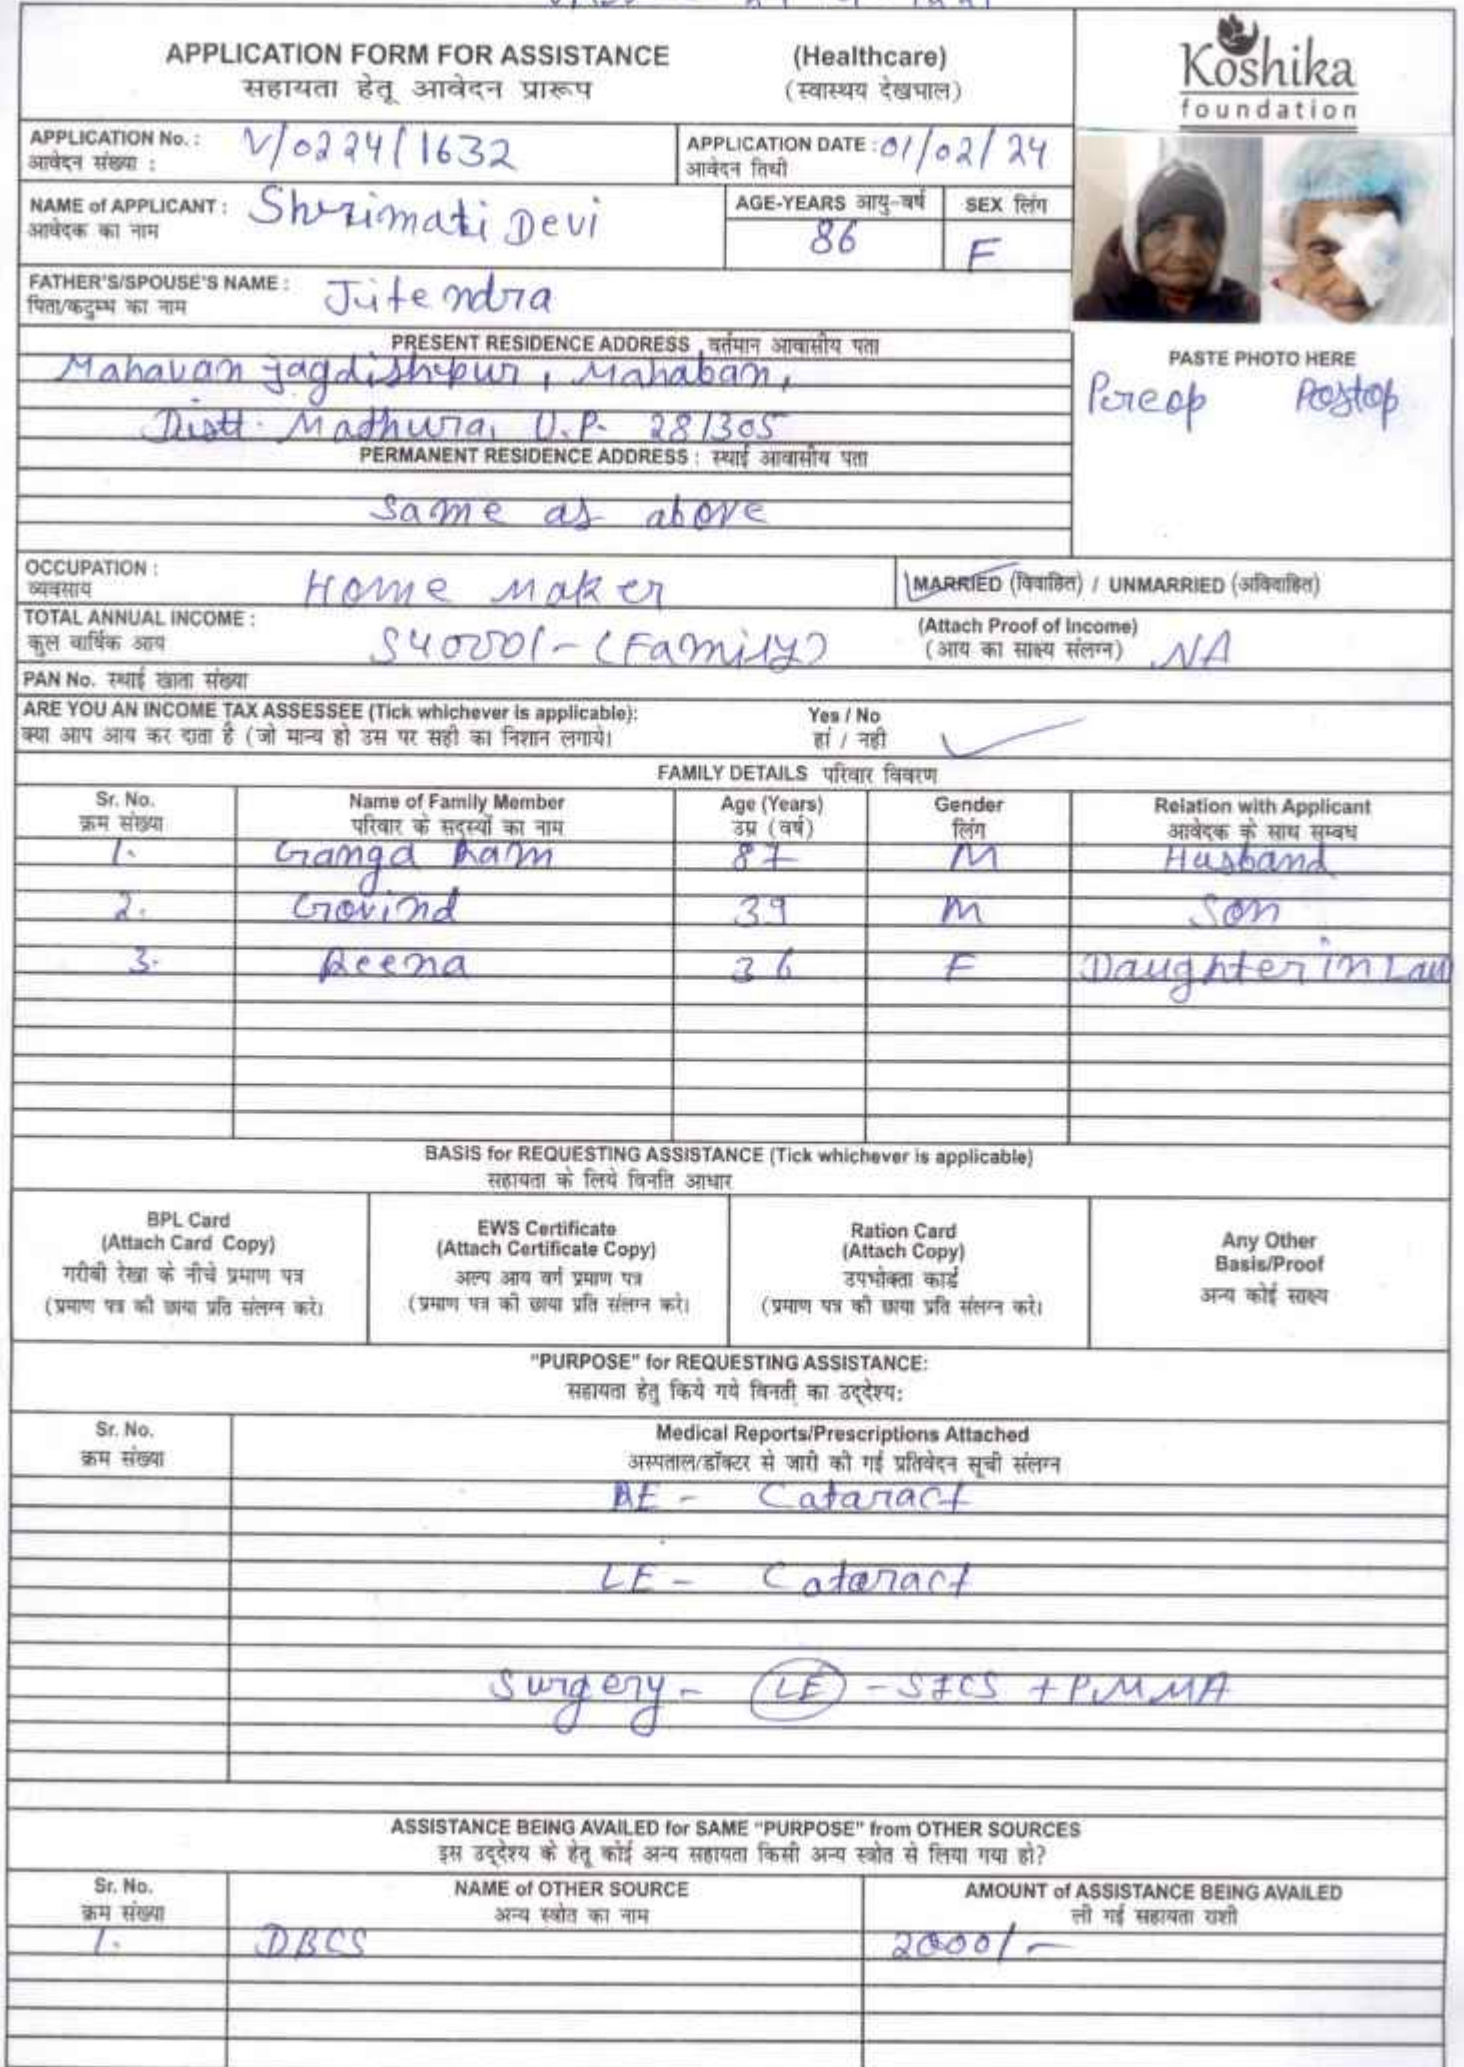 APPLICATION FORM FOR ASSISTANCE (Healthcare)
सहायता हेतू आवेदन प्रारूप (स्वास्थय देखभाल)
Koshika
foundation
APPLICATION No. : V/0224/1632 APPLICATION DATE : 01/02/24
आवेदन संख्या : आवेदन तिथी
NAME of APPLICANT : Shrimati Devi AGE-YEARS आयु-वर्ष SEX लिंग
आवेदक का नाम 86 F
FATHER'S/SPOUSE'S NAME : Jitendra
पिता/कटुम्ब का नाम
PRESENT RESIDENCE ADDRESS वर्तमान आवासीय पता
Mahavan Jagdishpur, Mahaban,
Distt. Mathura, U.P. 281305
PASTE PHOTO HERE
Preop Postop
PERMANENT RESIDENCE ADDRESS : स्थाई आवासीय पता
Same as above
OCCUPATION : Home Maker MARRIED (विवाहित) / UNMARRIED (अविवाहित)
व्यवसाय
TOTAL ANNUAL INCOME : 54000/- (Family) (Attach Proof of Income) NA
कुल वार्षिक आय (आय का साक्ष्य संलग्न)
PAN No. स्थाई खाता संख्या
ARE YOU AN INCOME TAX ASSESSEE (Tick whichever is applicable): Yes / No
क्या आप आय कर दाता है (जो मान्य हो उस पर सही का निशान लगाये। हां / नही
FAMILY DETAILS परिवार विवरण
Sr. No. Name of Family Member Age (Years) Gender Relation with Applicant
क्रम संख्या परिवार के सदस्यों का नाम उम्र (वर्ष) लिंग आवेदक के साथ सम्बध
1. Ganga Ram 87 M Husband
2. Govind 39 M Son
3. Reena 36 F Daughter in Law
BASIS for REQUESTING ASSISTANCE (Tick whichever is applicable)
सहायता के लिये विनति आधार
BPL Card
(Attach Card Copy)
गरीबी रेखा के नीचे प्रमाण पत्र
(प्रमाण पत्र की छाया प्रति संलग्न करे।
EWS Certificate
(Attach Certificate Copy)
अल्प आय वर्ग प्रमाण पत्र
(प्रमाण पत्र की छाया प्रति संलग्न करे।
Ration Card
(Attach Copy)
उपभोक्ता कार्ड
(प्रमाण पत्र की छाया प्रति संलग्न करे।
Any Other
Basis/Proof
अन्य कोई साक्ष्य
"PURPOSE" for REQUESTING ASSISTANCE:
सहायता हेतु किये गये विनती का उद्देश्य:
Sr. No. Medical Reports/Prescriptions Attached
क्रम संख्या अस्पताल/डॉक्टर से जारी की गई प्रतिवेदन सूची संलग्न
RE - Cataract
LE - Cataract
Surgery - LE - SICS + PMMA
ASSISTANCE BEING AVAILED for SAME "PURPOSE" from OTHER SOURCES
इस उद्देश्य के हेतू कोई अन्य सहायता किसी अन्य स्त्रोत से लिया गया हो?
Sr. No. NAME of OTHER SOURCE AMOUNT of ASSISTANCE BEING AVAILED
क्रम संख्या अन्य स्त्रोत का नाम ली गई सहायता राशी
1. DBCS 2000/-